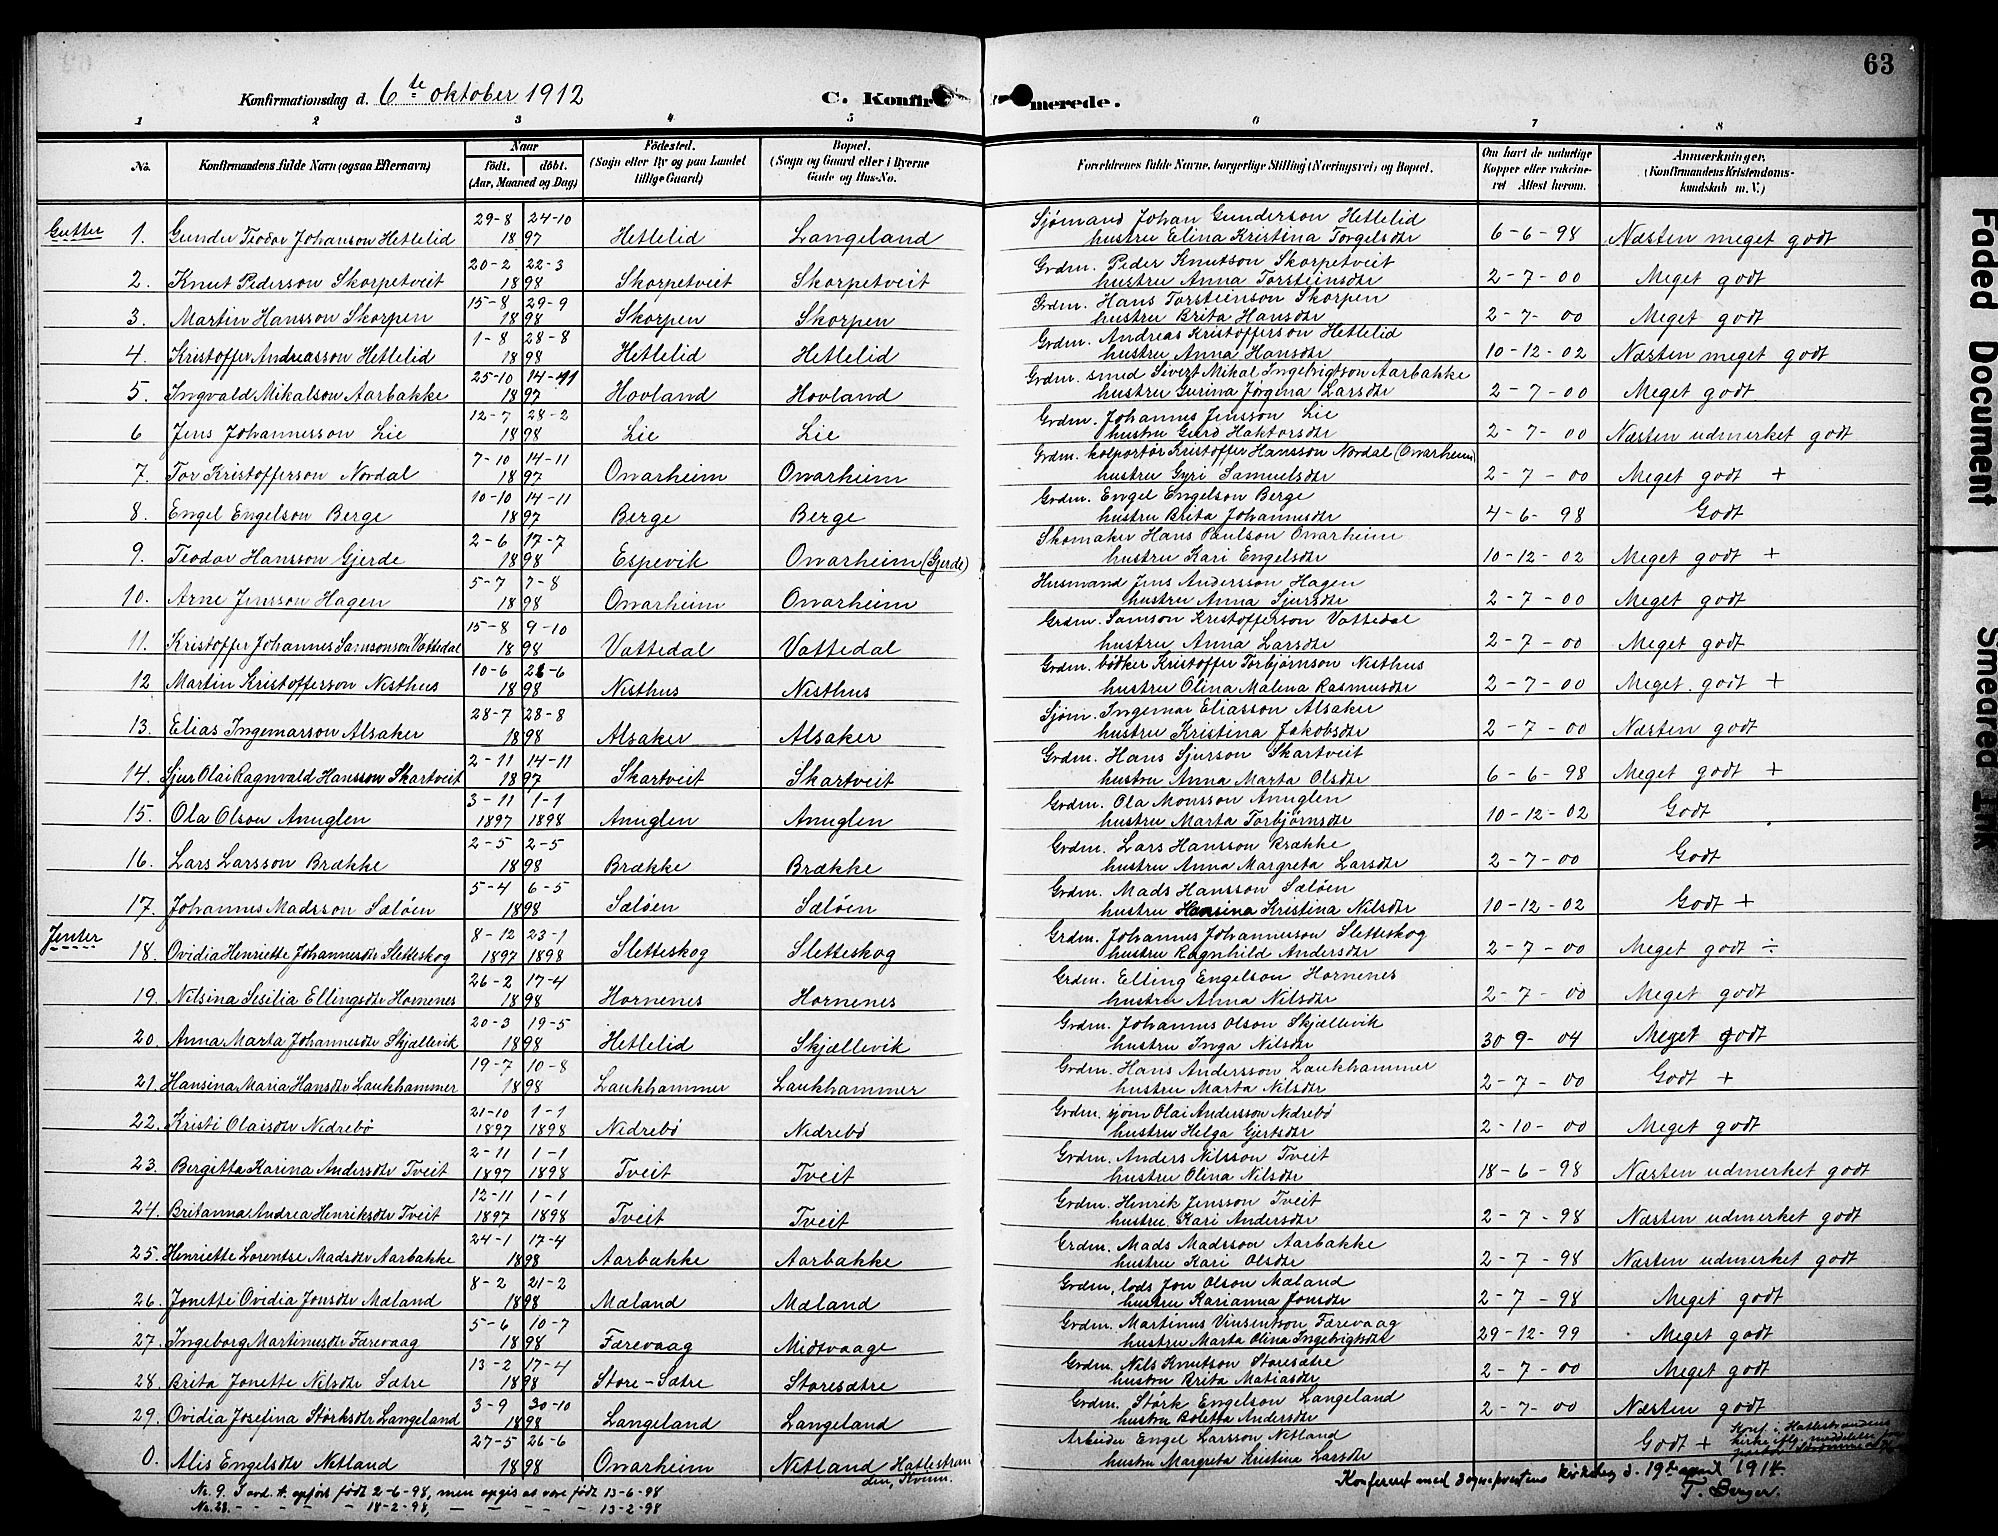 63
Konfirmationsdag d. 6te oktober 1912
C. Konfirmerede.
1 2 3 4 5 6 7 8
No. Konfirmandens fulde Navn (ogsaa Efternavn) Naar født. døbt. (Aar, Maaned og Dag) Fødested. (Sogn eller By og paa Landet tillige Gaard) Bopæl. (Sogn og Gaard eller i Byerne Gade og Hus-No. Forældrenes fulde Navne, borgerlige Stilling (Næringsvei) og Bopæl. Om havt de naturlige Kopper eller vakcineret Attest herom. Anmærkninger. (Konfirmandens Kristendomskundskab m. V.)
Gutter 1. Gunder Teodor Johanson Hettelid 29-8 24-10 1897 Hettelid Langeland Sjømand Johan Gunderson Hettelid hustru Elina Kristina Torgelsdtr 6-6-98 Næsten meget godt
2. Knut Pederson Skorpetveit 20-2 22-3 1898 Skorpetveit Skorpetveit Grdm. Peder Knutson Skorpetveit hustru Anna Torsteinsdtr 2-7-00 Meget godt
3. Martin Hansson Skorpen 15-8 29-9 1898 Skorpen Skorpen Grdm. Hans Torsteinson Skorpen hustru Brita Hansdtr 2-7-00 Meget godt
4. Kristoffer Andreasson Hettelid 1-8 28-8 1898 Hettelid Hettelid Grdm. Andreas Kristofferson Hettelid hustru Anna Hansdtr 10-12-02 Næsten meget godt
5. Ingvald Mikalson Aarbakke 25-10 14-11 1897 Hovland Hovland Grdm. smed Sivert Mikal Ingebrigtson Aarbakke hustru Gurina Jørgina Larsdtr 2-7-00 Meget godt
6 Jens Johannesson Lie 12-7 28-2 1898 Lie Lie Grdm. Johannes Jensson Lie hustru Gurd Haktorsdtr 2-7-00 Næsten udmerket godt
7. Tor Kristofferson Nordal 7-10 14-11 1897 Onarheim Onarheim Grdm. kolportør Kristoffer Hansson Nordal (Onarheim) hustru Gyri Samuelsdtr 2-7-00 Meget godt +
8. Engel Engelson Berge 10-10 14-11 1897 Berge Berge Grdm. Engel Engelson Berge hustru Brita Johannesdtr 4-6-98 Godt
9. Teodor Hansson Gjerde 2-6 17-7 1898 Espevik Onarheim (Gjerde) Skomaker Hans Paulson Onarheim hustru Kari Engelsdtr 10-12-02 Meget godt +
10. Arne Jensson Hagen 5-7 7-8 1898 Onarheim Onarheim Husmand Jens Andersson Hagen hustru Anna Sjursdtr 2-7-00 Meget godt
11. Kristoffer Johannes Samsonson Vattedal 15-8 9-10 1898 Vattedal Vattedal Grdm. Samson Kristofferson Vattedal hustru Anna Larsdtr 2-7-00 Meget godt
12 Martin Kristofferson Nesthus 10-6 26-6 1898 Nesthus Nesthus Grdm. bødker Kristoffer Torbjørnson Nesthus hustru Olina Malena Rasmusdtr 2-7-00 Meget godt +
13. Elias Ingemarson Alsaker 28-7 28-8 1898 Alsaker Alsaker Sjøm. Ingemar Eliasson Alsaker hustru Kristina Jakobsdtr 2-7-00 Næsten godt
14. Sjur Olai Ragnvald Hansson Skartveit 2-11 14-11 1897 Skartveit Skartveit Grdm. Hans Sjurson Skartveit hustru Anna Marta Olsdtr 6-6-98 Meget godt +
15. Ola Olson Anuglen 3-11 1-1 1897 1898 Anuglen Anuglen Grdm. Ola Monsson Anuglen hustru Marta Torbjørnsdtr 10-12-02 Godt
16. Lars Larsson Brække 2-5 2-5 1898 Brække Brække Grdm. Lars Hansson Brække hustru Anna Margreta Larsdtr 2-7-00 Godt
17. Johannes Madsson Sæløen 5-4 6-5 1898 Sæløen Sæløen Grdm. Mads Hansson Sæløen hustru Hansina Kristina Nilsdtr 10-12-02 Godt +
Jenter 18. Ovidia Henriette Johannesdtr Sletteskog 8-12 23-1 1897 1898 Sletteskog Sletteskog Grdm. Johannes Johannesson Sletteskog hustru Ragnhild Andersdtr 2-7-00 Meget godt ÷
19. Nilsina Sesilia Ellingsdtr Hornenes 26-2 17-4 1898 Hornenes Hornenes Grdm. Elling Engelson Hornenes hustru Anna Nilsdtr 2-7-00 Meget godt
20. Anna Marta Johannesdtr Skjællevik 20-3 19-5 1898 Hettelid Skjællevik Grdm. Johannes Olson Skjællevik hustru Inga Nilsdtr 30 9-04 Meget godt
21. Hansina Maria Hansdtr Laukhammer 19-7 10-8 1898 Laukhammer Laukhammer Grdm. Hans Andersson Laukhammer hustru Marta Nilsdtr 2-7-00 Godt +
22. Kristi Olaisdtr Nedrebø 21-10 1-1 1897 1898 Nedrebø Nedrebø Grdm. sjøm Olai Andersson Nedrebø hustru Helga Gjertsdtr 2-10-00 Meget godt
23. Bergitta Karina Andersdtr Tveit 2-11 1-1 1897 1898 Tveit Tveit Grdm. Anders Nilsson Tveit hustru Olina Nilsdtr 18-6-98 Næsten udmerket godt
24. Britanna Andrea Henriksdtr Tveit 12-11 1-1 1897 1898 Tveit Tveit Grdm. Henrik Jensson Tveit hustru Kari Andersdtr 2-7-98 Næsten udmerket godt
25. Henriette Lorentse Madsdtr Aarbakke 24-1 17-4 1898 Aarbakke Aarbakke Grdm. Mads Madsson Aarbakke hustru Kari Olsdtr 2-7-98 Næsten udmerket godt
26. Jonette Ovidia Jonsdtr Mæland 8-2 21-2 1898 Mæland Mæland Grdm, lods Jon Olson Mæland hustru Karianna Jonsdtr 2-7-98 Meget godt
27. Ingeborg Martinusdtr Færevaag 5-6 10-7 1898 Færevaag Midtvaage Grdm. Martinus Vinsentson Færevaag hustru Marta Olina Ingebrigtsdtr 29-12-99 Meget godt
28. Brita Jonette Nilsdtr Sætre 13-2 17-4 1898 Store-Sætre Storesætre Grdm. Nils Knutson Storesætre hustru Brita Matiasdtr 2-7-00 Meget godt
29. Ovidia Josefina Størksdtr Langeland 3-9 30-10 1898 Langeland Langeland Grdm. Størk Engelson Langeland hustru Boletta Andersdtr 2-7-00 Næsten godt
0. Alis Engelsdtr Netland 27-5 26-6 1898 Onarheim Netland Hatlestranden, Kvinn. Arbeider Engel Larsson Netland hustru Margreta Kristina Larsdtr Godt + Konf. i Hatlestrandens kirke iflg. meddelelse fra
Nr. 9. I ord. A. opført født 2-6-98, men opgis at være født 13-6-98
Nr. 28. - - - - 18-2-98, - - - - 13-2-98
Konferert med sogneprestens kirkebog d. 19de april 1914.
T. Berger.
Faded Document
Smeared Ink